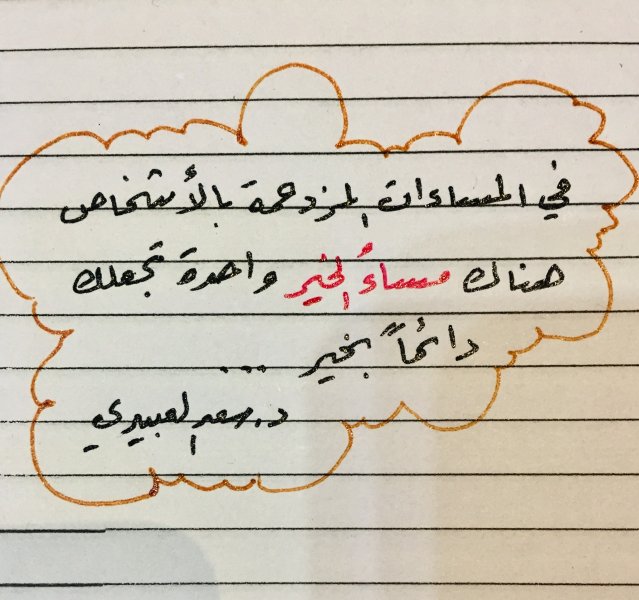 في المساءات المزدحمة بالأشخاص
هناك مساءُ الخير واحدة تجعلك
دائماً بخير ...
د. سعد العبيدي